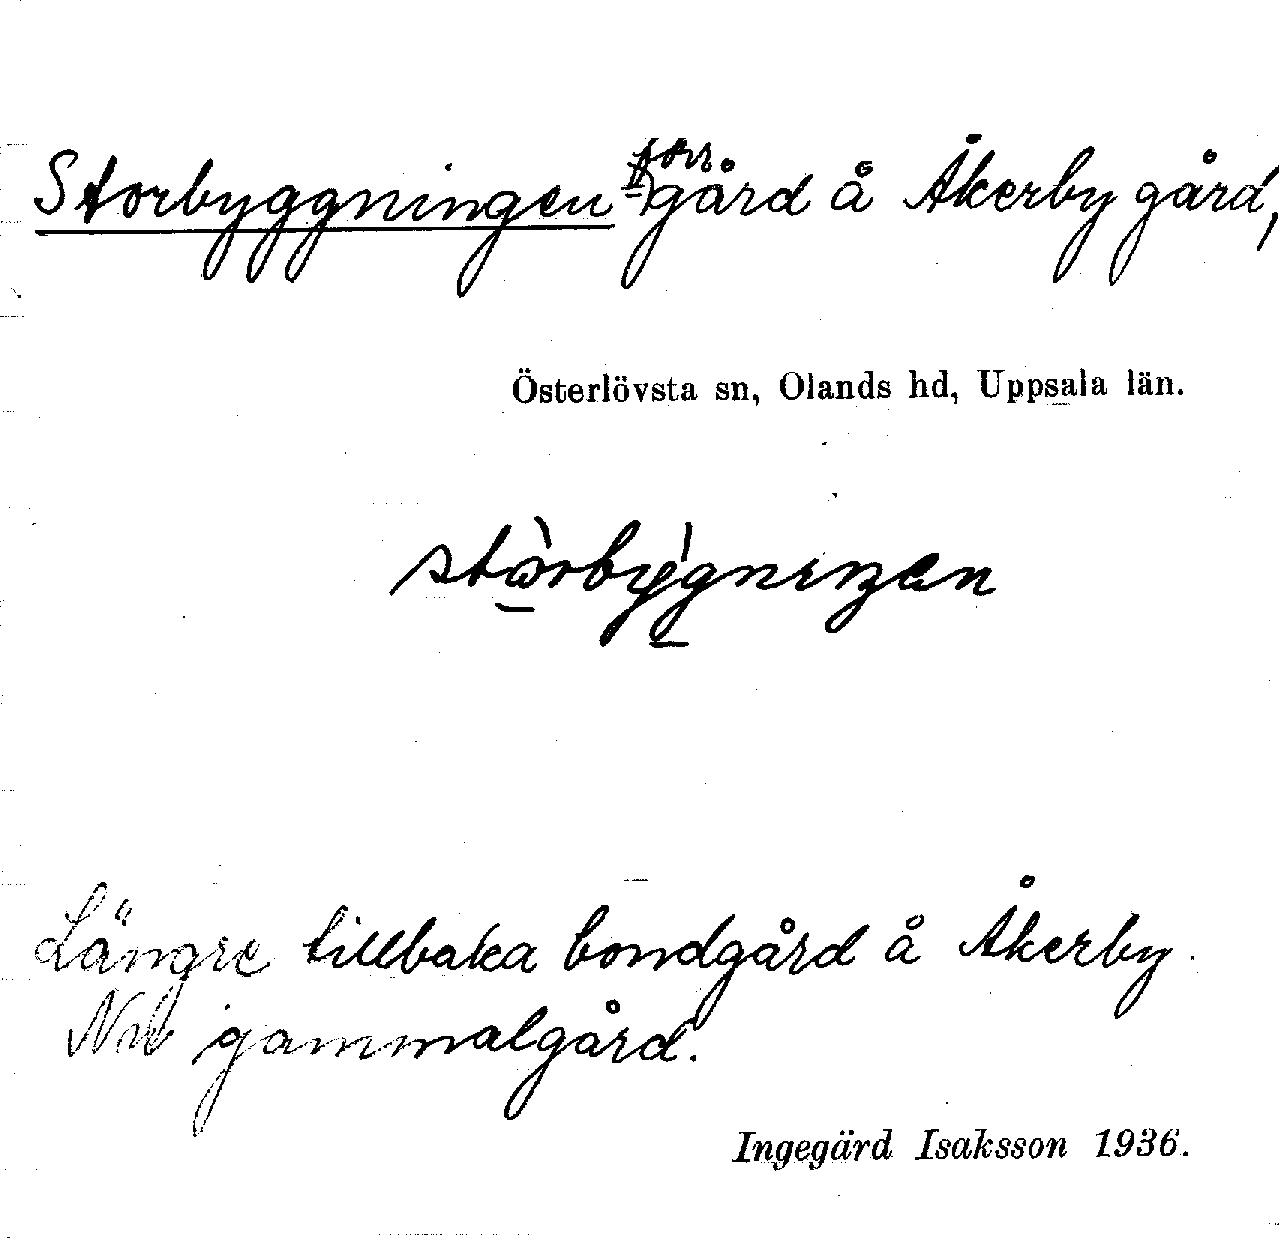 Storbyggningen förr gård å Åkerby gård,
Österlövsta sn, Olands hd, Uppsala län.
Längre tillbaka bondgård å Åkerby.
Nu gammalgård.
Ingegärd Isaksson 1936.